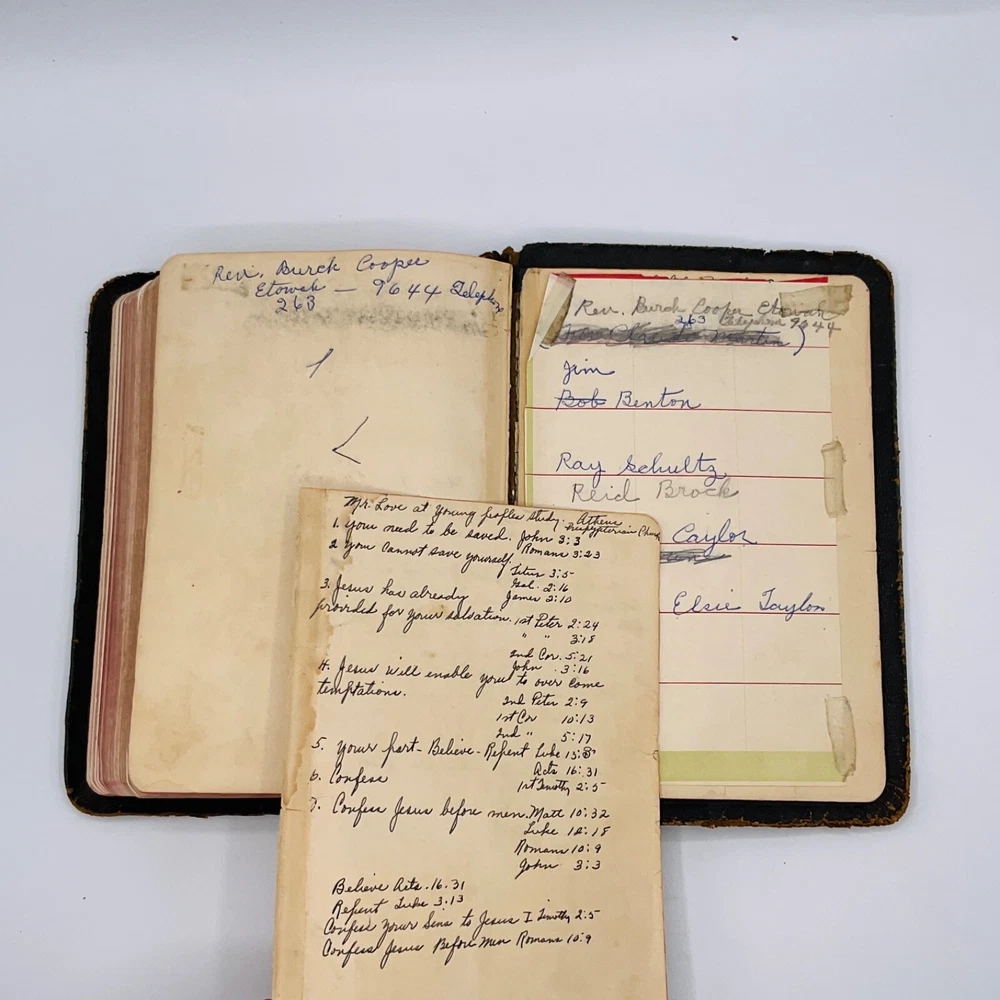 Rev. Burck Cooper
Etowah — 9644 Telephone
263
Rev. Burck Cooper Etowah
263 9644
Martin)
Jim
Bob Benton
Ray Schultz
Reid Brock
Caylor
Elsie Taylor
Mr. Love at Young peoples study. Athens
Presbyterian Church
1. You need to be saved. John 3:3
Romans 3:23
2 You cannot save yourself.
Titus 3:5
Gal. 2:16
James 2:10
3. Jesus has already
provided for your salvation. 1st Peter 2:24
" " 3:18
2nd Cor. 5:21
John 3:16
4. Jesus will enable you to over come
temptations.
2nd Peter 2:9
1st Cor 10:13
2nd " 5:17
5. Your part - Believe - Repent Luke 13:3
Acts 16:31
6. Confess
1st Timothy 2:5
7. Confess Jesus before men. Matt 10:32
Luke 12:18
Romans 10:9
John 3:3
Believe Acts. 16.31
Repent Luke 3.13
Confess Your Sins to Jesus I Timothy 2:5
Confess Jesus Before Men Romans 10:9